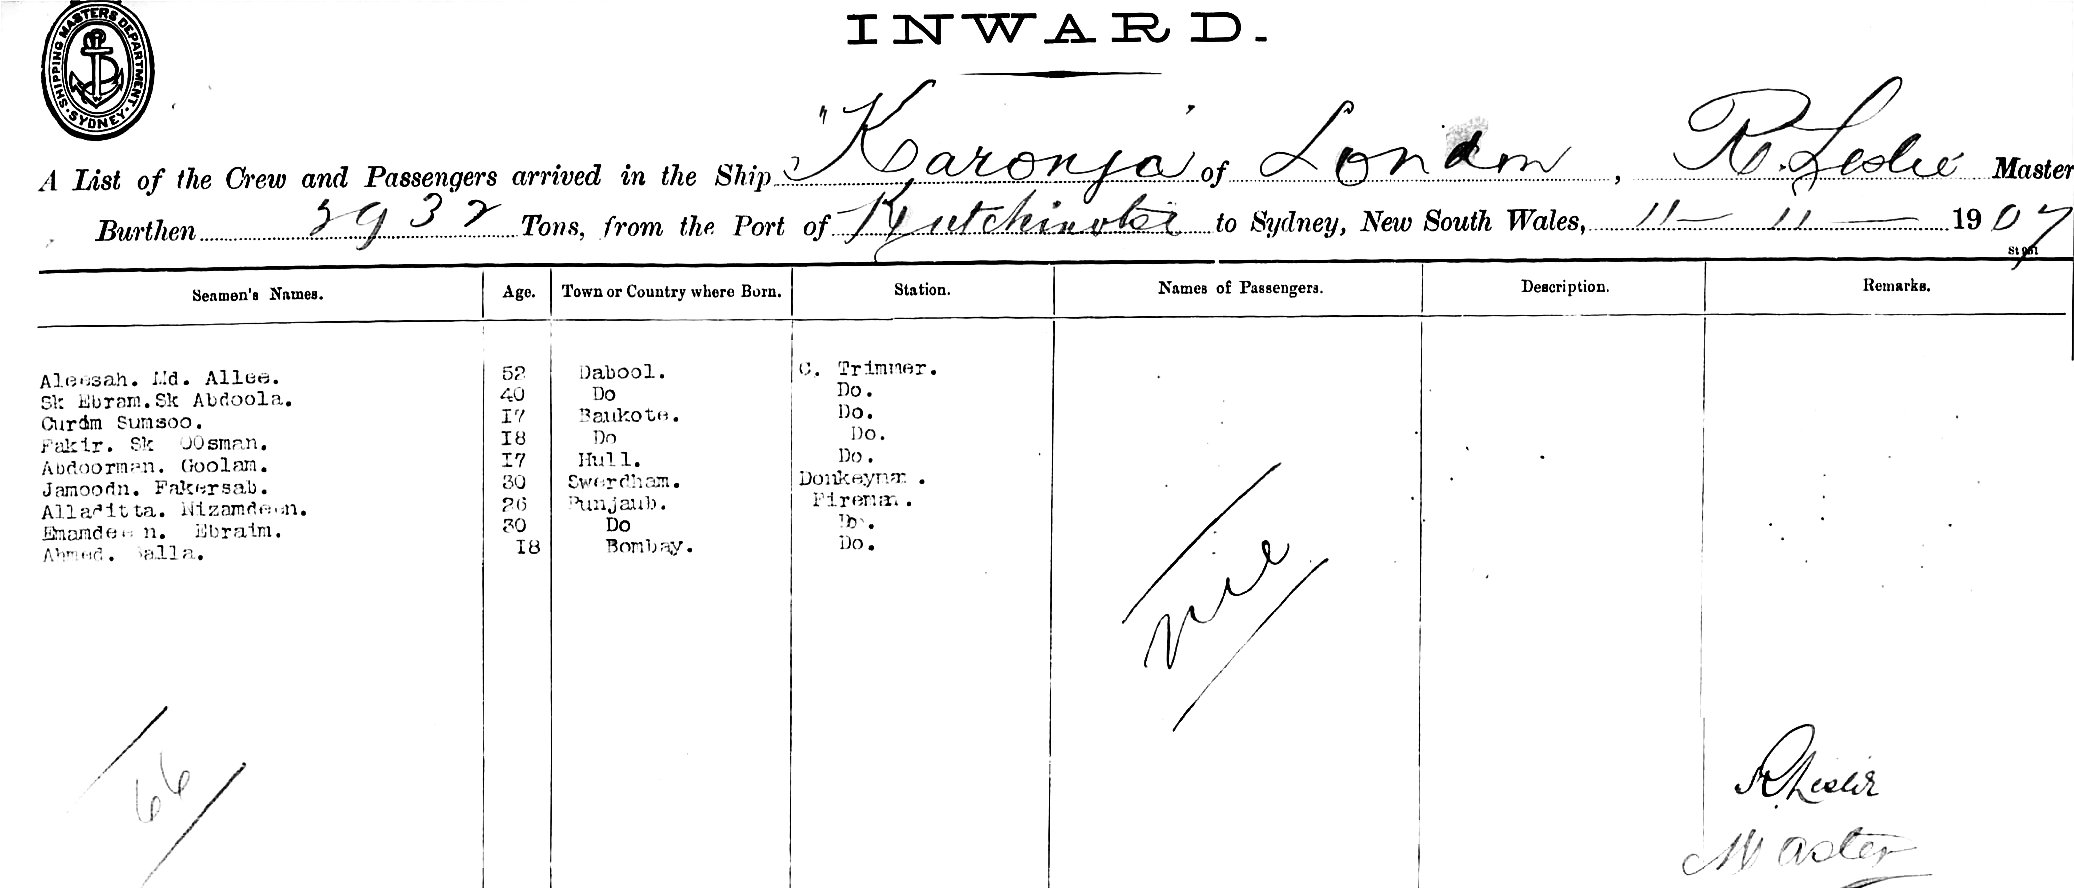 SHIPPING MASTERS DEPARTMENT. SYDNEY.
INWARD.
A List of the Crew and Passengers arrived in the Ship "Karonga" of London, R. Leslie Master
Burthen 2932 Tons, from the Port of Kutchinotzu to Sydney, New South Wales, 11 – 11 – 1907
Seamen's Names. Age. Town or Country where Born. Station. Names of Passengers. Description. Remarks.
Aleesah. Md. Allee. 52 Dabool. C. Trimmer.
Sk Ebram.Sk Abdoola. 40 Do Do.
Curdm Sumsoo. 17 Bankote. Do.
Fakir. Sk OOsman. 18 Do Do.
Abdoorman. Goolam. 17 Hull. Do.
Jamoodn. Fakersab. 30 Swerdham. Donkeymn.
Alladitta. Nizamdeen. 26 Punjaub. Fireman.
Emamdeen. Ebraim. 30 Do Do.
Ahmed. alla. 18 Bombay. Do.
Nil
66
R. Leslie
Master